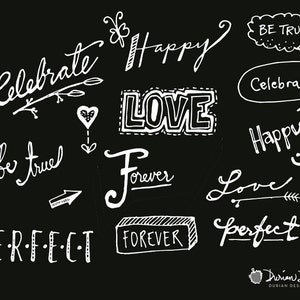 Celebrate
Happy
BE TRU
LOVE
Celebra
be true
Forever
Happy
Love
PERFECT
FOREVER
perfect
Durian
DURIAN DES